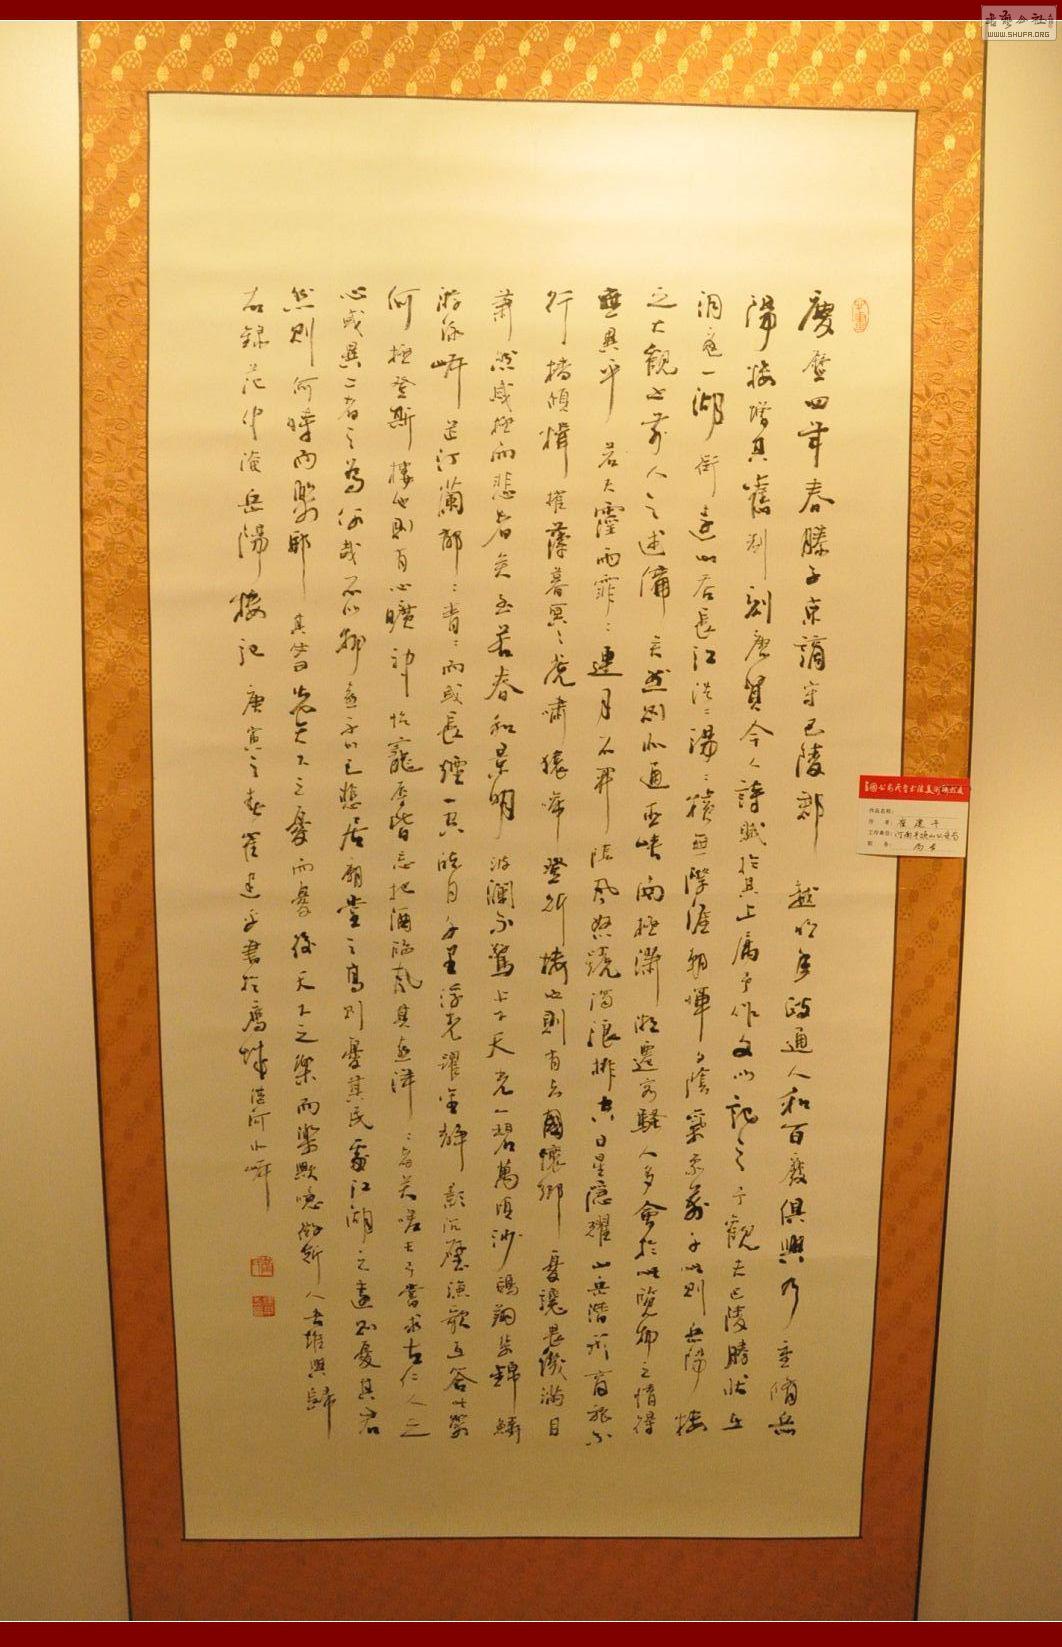 慶曆四年春滕子京謫守巴陵郡越明年政通人和百廢俱興乃重脩岳
陽樓增其舊制刻唐賢今人詩賦於其上屬予作文以記之予觀夫巴陵勝狀在
洞庭一湖銜遠山吞長江浩〻湯〻橫無際涯朝暉夕陰氣象萬千此則岳陽樓
之大觀也前人之述備矣然則北通巫峽南極瀟湘遷客騷人多會於此覽物之情得
無異乎若夫霪雨霏〻連月不開陰風怒號濁浪排空日星隱耀山岳潛形商旅不
行檣傾楫摧薄暮冥〻虎嘯猿啼登斯樓也則有去國懷鄉憂讒畏譏滿目
蕭然感極而悲者矣至若春和景明波瀾不驚上下天光一碧萬頃沙鷗翔集錦鱗
游泳岸芷汀蘭郁〻青〻而或長煙一空皓月千里浮光躍金靜影沉璧漁歌互答此樂
何極登斯樓也則有心曠神怡寵辱皆忘把酒臨風其喜洋〻者矣嗟夫予嘗求古仁人之
心或異二者之為何哉不以物喜不以己悲居廟堂之高則憂其民處江湖之遠則憂其君
然則何時而樂耶其必曰先天下之憂而憂後天下之樂而樂歟噫微斯人吾誰與歸
右錄范仲淹岳陽樓記庚寅之春崔建平書於鷹城湛河北岸
作品名稱：
作者：崔建平
工作單位：河南平頂山公安局
職務：
书艺公社
WWW.SHUFA.ORG